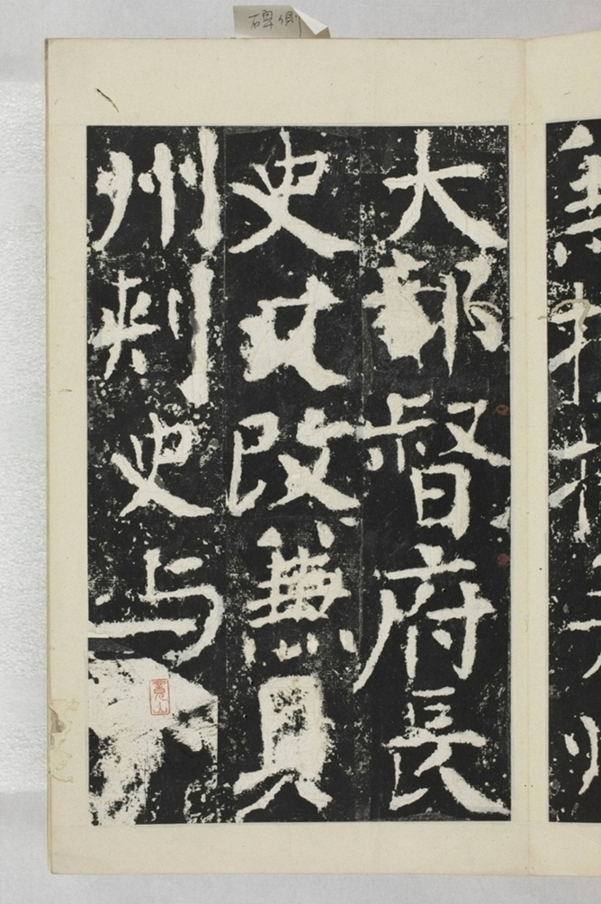 碑側
大都督府長
史又改兼貝
州刺史与